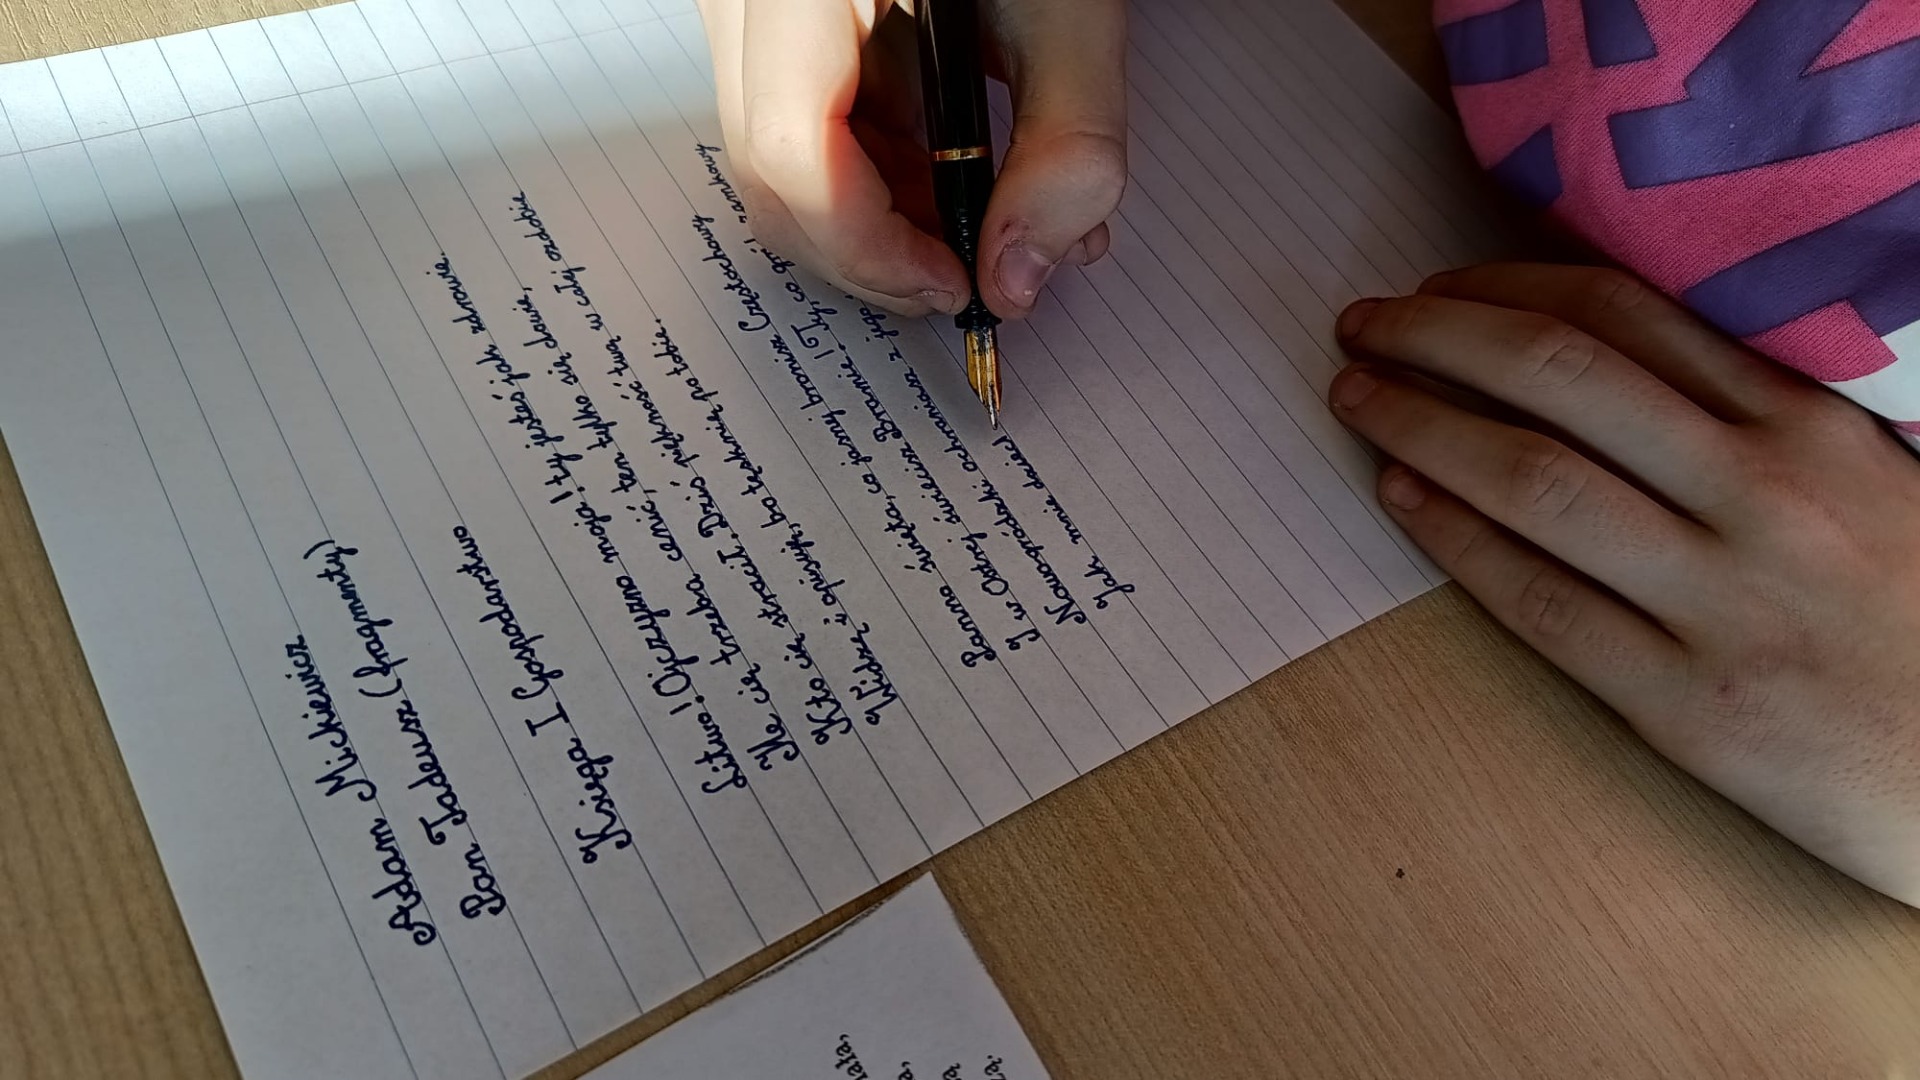 Adam Mickiewicz
Pan Tadeusz (fragmenty)
Księga I Gospodarstwo
Litwo! Ojczyzno moja! ty jesteś jak zdrowie.
Ile cię trzeba cenić, ten tylko się dowie,
Kto cię stracił. Dziś piękność twą w całej ozdobie
Widzę i opisuję, bo tęsknię po tobie.
Panno święta, co jasnej bronisz Częstochowy
I w Ostrej świecisz Bramie! Ty, co gród zamkowy
Nowogródzki ochraniasz z jego
Jak mnie dzieci